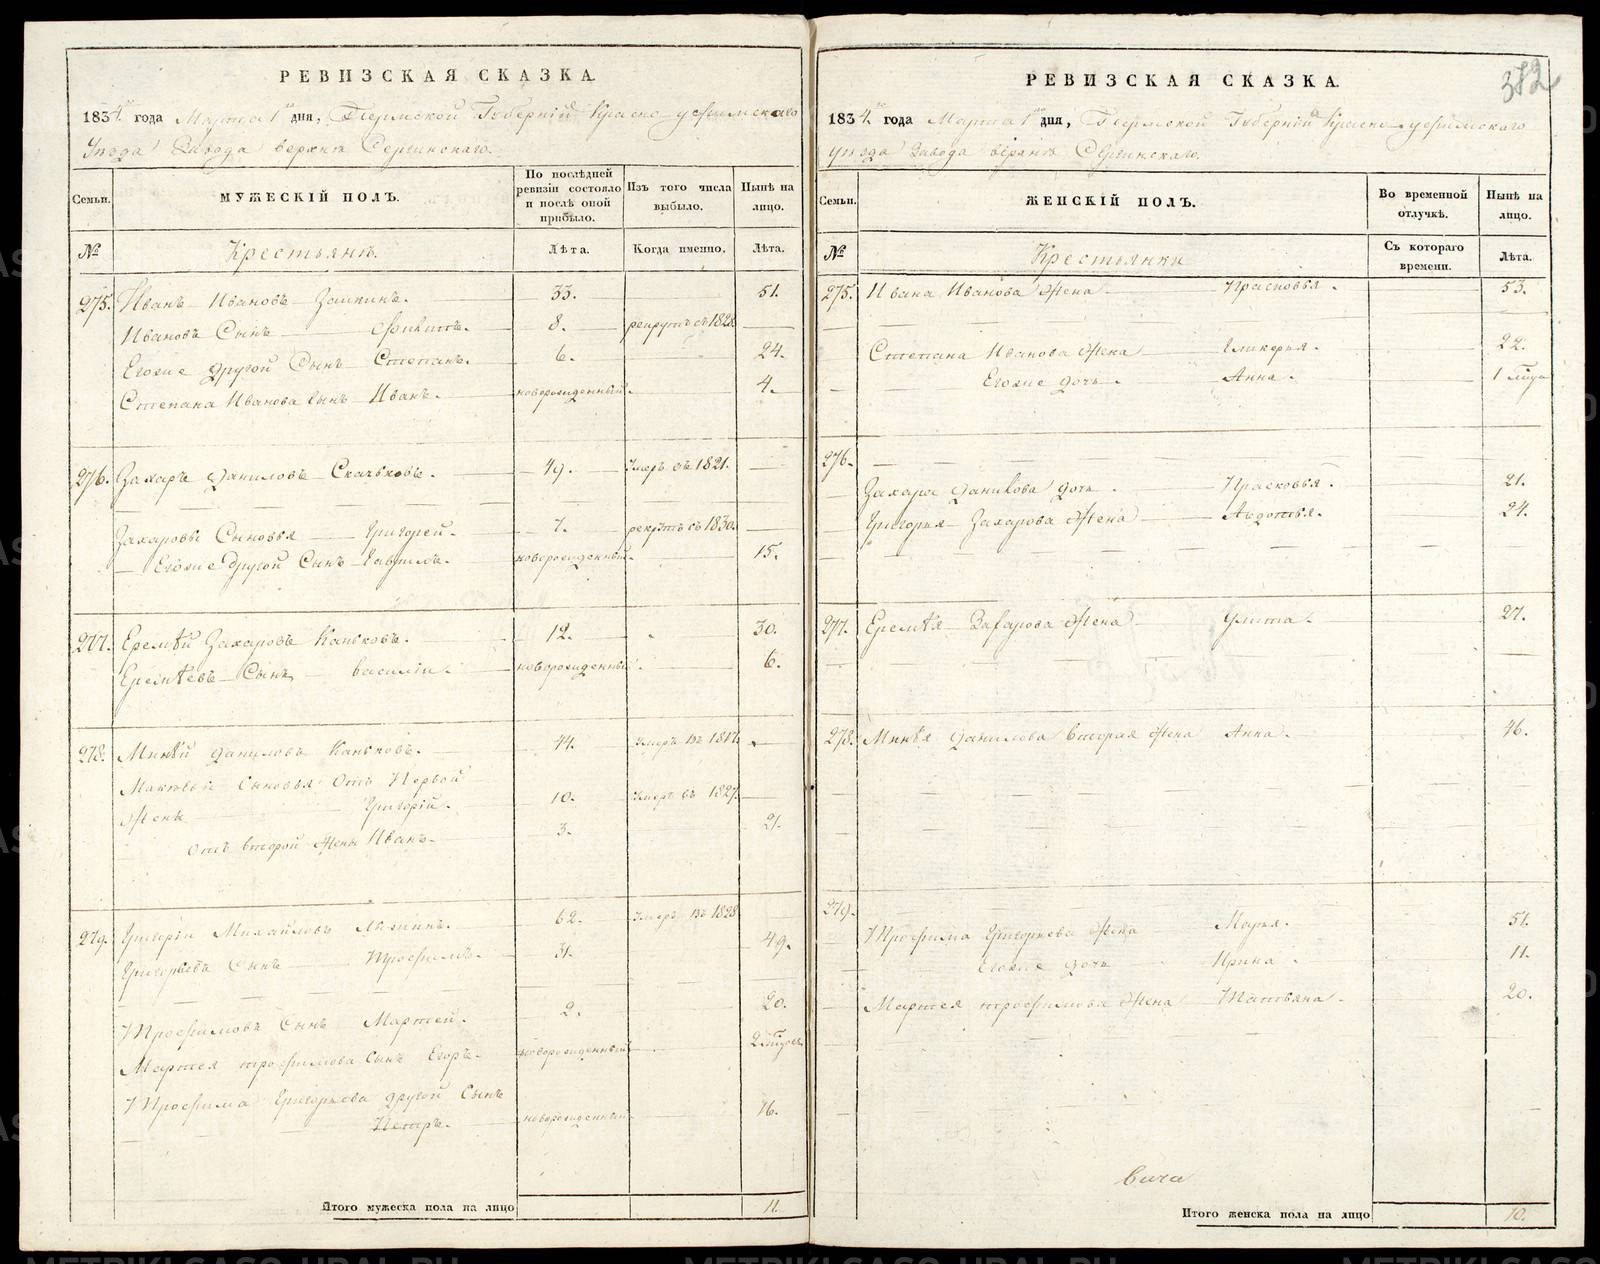 РЕВИЗСКАЯ СКАЗКА.
1834 года Марта 1 дня, Пермской Губернiи Красно уфимскаго
Уѣзда Завода верхнѣ Сергинскаго.
Семьи.
МУЖЕСКІЙ ПОЛЪ.
По послѣдней ревизіи состояло и послѣ оной прибыло.
Изъ того числа выбыло.
Нынѣ на лицо.
№
Крестьянѣ.
Лѣта.
Когда именно.
Лѣта.
275. Иванъ Ивановъ 33. 51.
Ивановъ Сынъ 8. рекрутъ съ 1828
Егоже другой Сынъ Степанъ. 6. 24.
Степана Иванова сынъ Иванъ. новорожденный. 4.
276. Захаръ Даниловъ 49. Умеръ въ 1821.
Захаровы Сыновья Григорей. 7. рекрутъ съ 1830.
Егоже другой Сынъ Гаврило. новорожденный. 15.
277. Еремѣй Захаровъ Каньковъ. 12. 30.
Еремѣевъ Сынъ Василiи. новорожденный. 6.
278. Минѣй Даниловъ Каньковъ. 44. Умеръ въ 1817.
Сыновья Отъ Первой
Жены Григорiй. 10. Умеръ въ 1827.
Отъ второй Жены Иванъ. 3. 21.
279. Григорiи Михайловъ 62. Умеръ въ 1828
Григорьевъ Сынъ Трофимъ. 31. 49.
Трофимовъ Сынъ Мартей. 2. 20.
Мартея трофимова Сынъ Егоръ. новорожденный
Трофима Григорьева другой Сынъ
Петръ. новорожденный 16.
Итого мужеска пола на лицо 11.
372
РЕВИЗСКАЯ СКАЗКА.
1834 года Марта 1 дня, Пермской Губернiи Красно уфимскаго
Уѣзда Завода верхнѣ Сергинскаго.
Семьи.
ЖЕНСКІЙ ПОЛЪ.
Во временной отлучкѣ.
Нынѣ на лицо.
№
Крестьянки
Съ котораго времени.
Лѣта.
275. Ивана Иванова Жена Прасковья. 53.
Степана Иванова Жена Гликерья. 22.
Егоже дочь Анна. 1
276.
Захара Данилова дочь Прасковья. 21.
Григорья Захарова Жена Авдотья. 24.
277. Еремѣя Захарова Жена Улита. 27.
278. Минѣя Данилова вторая Жена Анна. 46.
279.
Трофима Григорьева Жена Марья. 51.
Егоже дочь Ирина. 11.
Мартея трофимова Жена Татьяна. 20.
Итого женска пола на лицо 10.